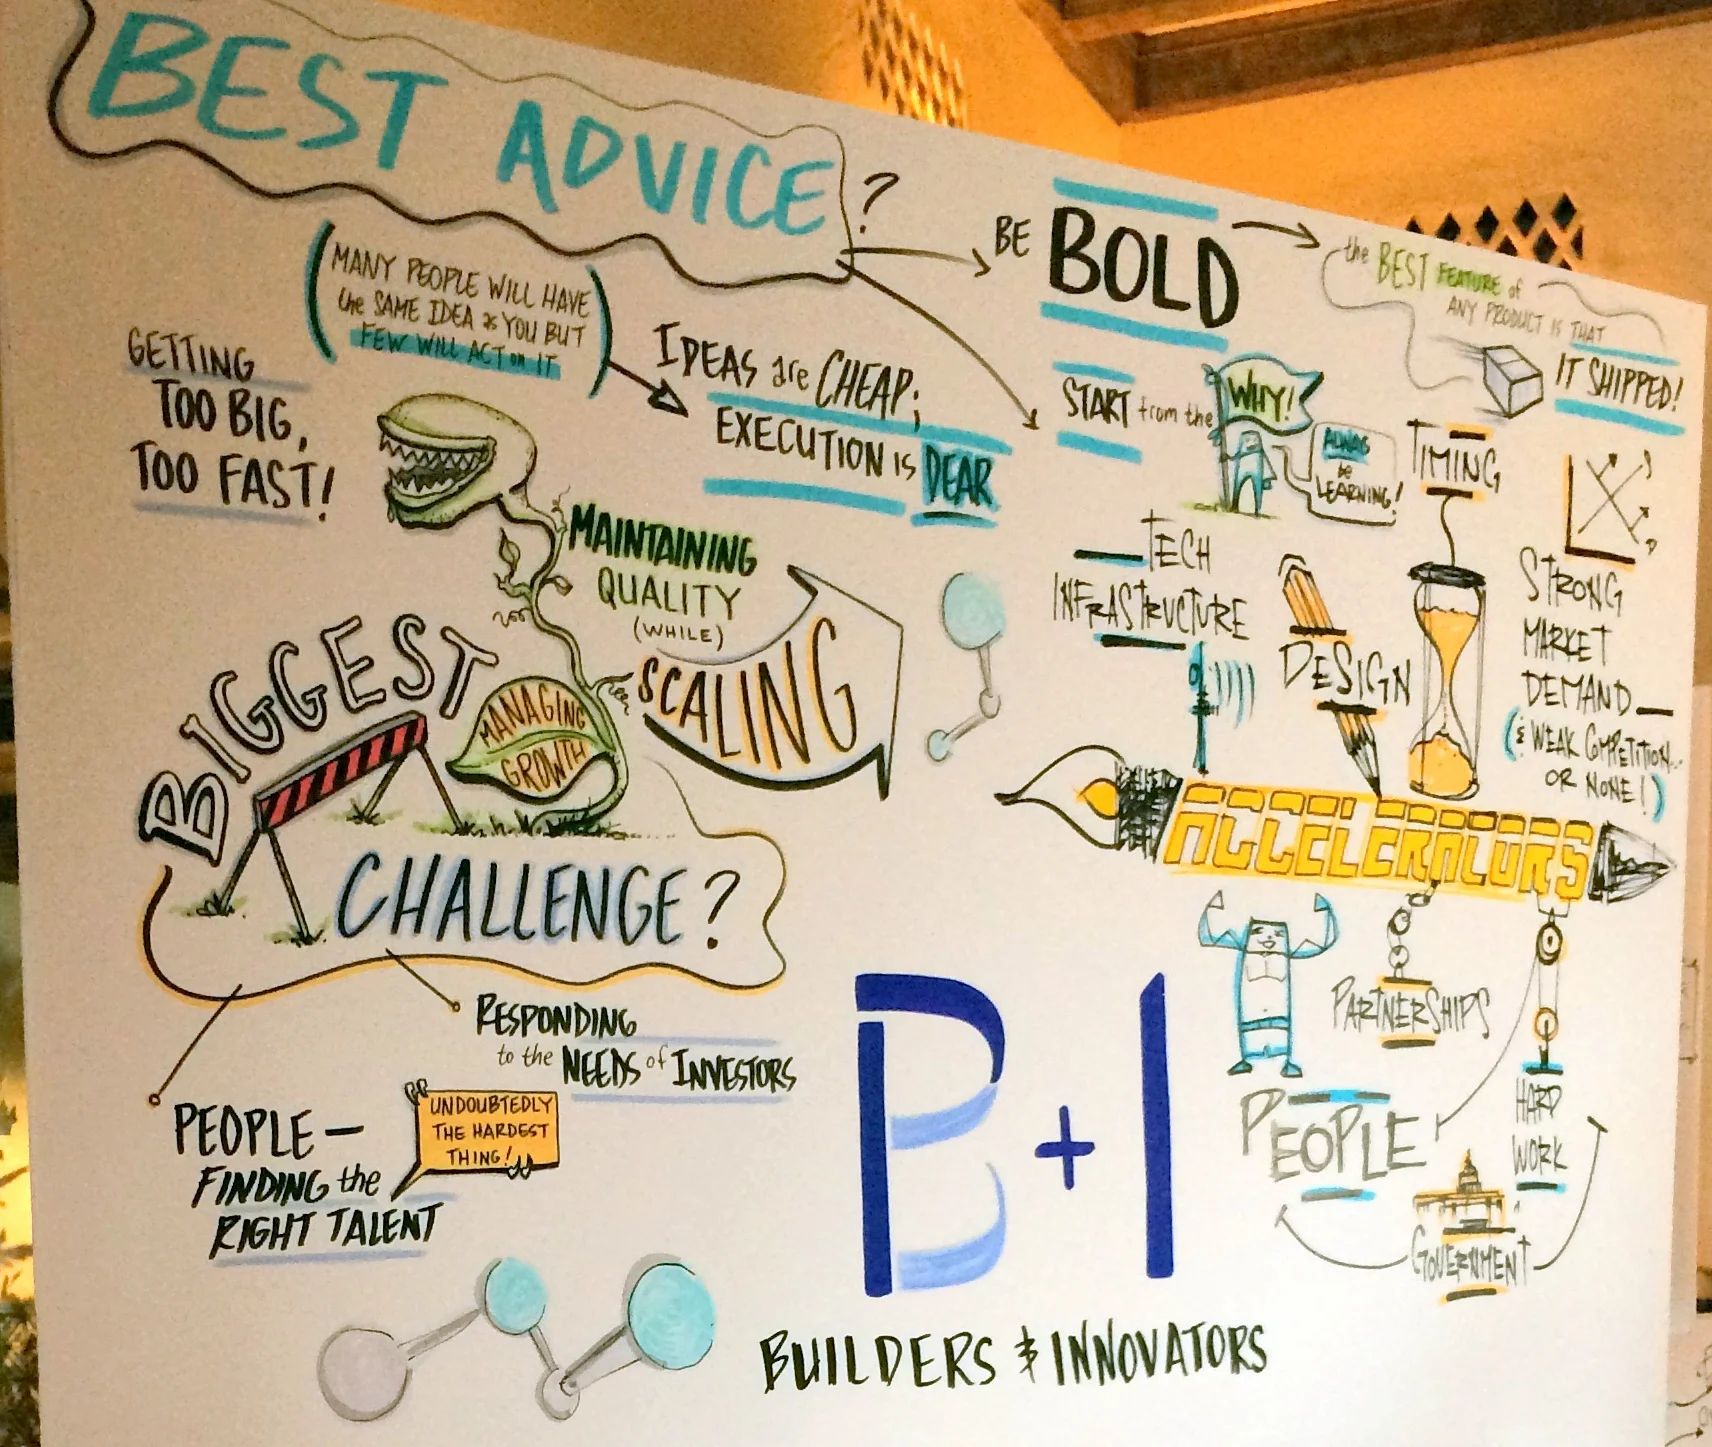 BEST ADVICE?
(MANY PEOPLE WILL HAVE
the SAME IDEA as YOU BUT
FEW WILL ACT on IT)
IDEAS are CHEAP;
EXECUTION is DEAR
BE BOLD
the BEST FEATURE of
ANY PRODUCT IS THAT
IT SHIPPED!
START from the WHY!
ALWAS
be
LEARNING!
GETTING
TOO BIG,
TOO FAST!
MAINTAINING
QUALITY
(WHILE)
SCALING
MANAGING
GROWTH
BIGGEST
CHALLENGE?
RESPONDING
to the NEEDS of INVESTORS
PEOPLE —
FINDING the
RIGHT TALENT
"UNDOUBTEDLY
THE HARDEST
THING!"
TIMING
TECH
INFRASTRUCTURE
DESIGN
STRONG
MARKET
DEMAND —
(& WEAK COMPETITION...
OR NONE!)
ACCELERATORS
PARTNERSHIPS
PEOPLE
HARD
WORK
GOVERNMENT
B+I
BUILDERS & INNOVATORS